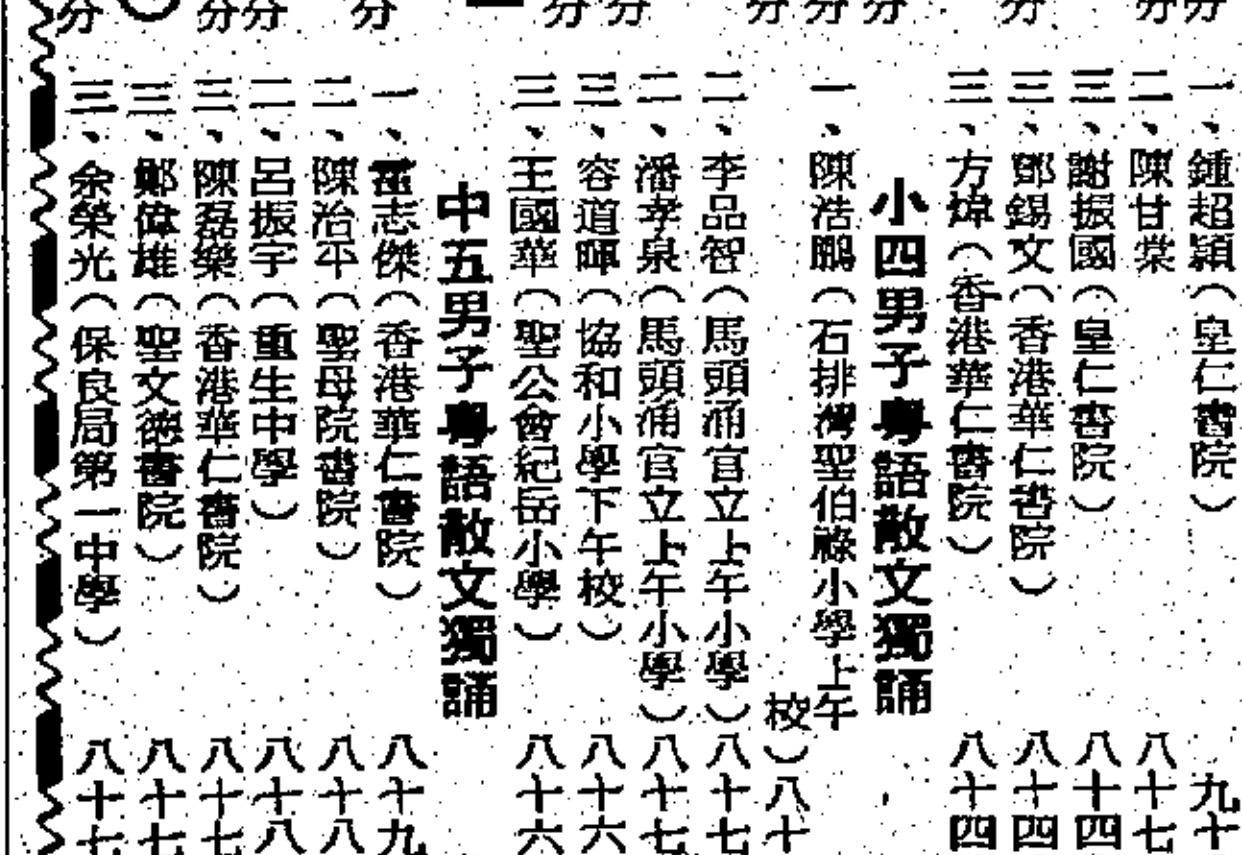 分分 分 分分分 分分 分 分分 分
一、鍾超穎（皇仁書院） 九十
二、陳甘棠 八十七
三、謝振國（皇仁書院） 八十四
三、鄧錫文（香港華仁書院） 八十四
三、方煒（香港華仁書院） 八十四
小四男子粵語散文獨誦
一、陳浩鵬（石排灣聖伯祿小學上午
校）八十
二、李品智（馬頭涌官立上午小學）八十七
二、潘孝泉（馬頭涌官立上午小學）八十七
三、容道暉（協和小學下午校） 八十六
三、王國華（聖公會紀岳小學） 八十六
中五男子粵語散文獨誦
一、霍志傑（香港華仁書院） 八十九
二、陳治平（聖母院書院） 八十八
二、呂振宇（重生中學） 八十八
三、陳磊樂（香港華仁書院） 八十七
三、鄭偉雄（聖文德書院） 八十七
三、余榮光（保良局第一中學） 八十七